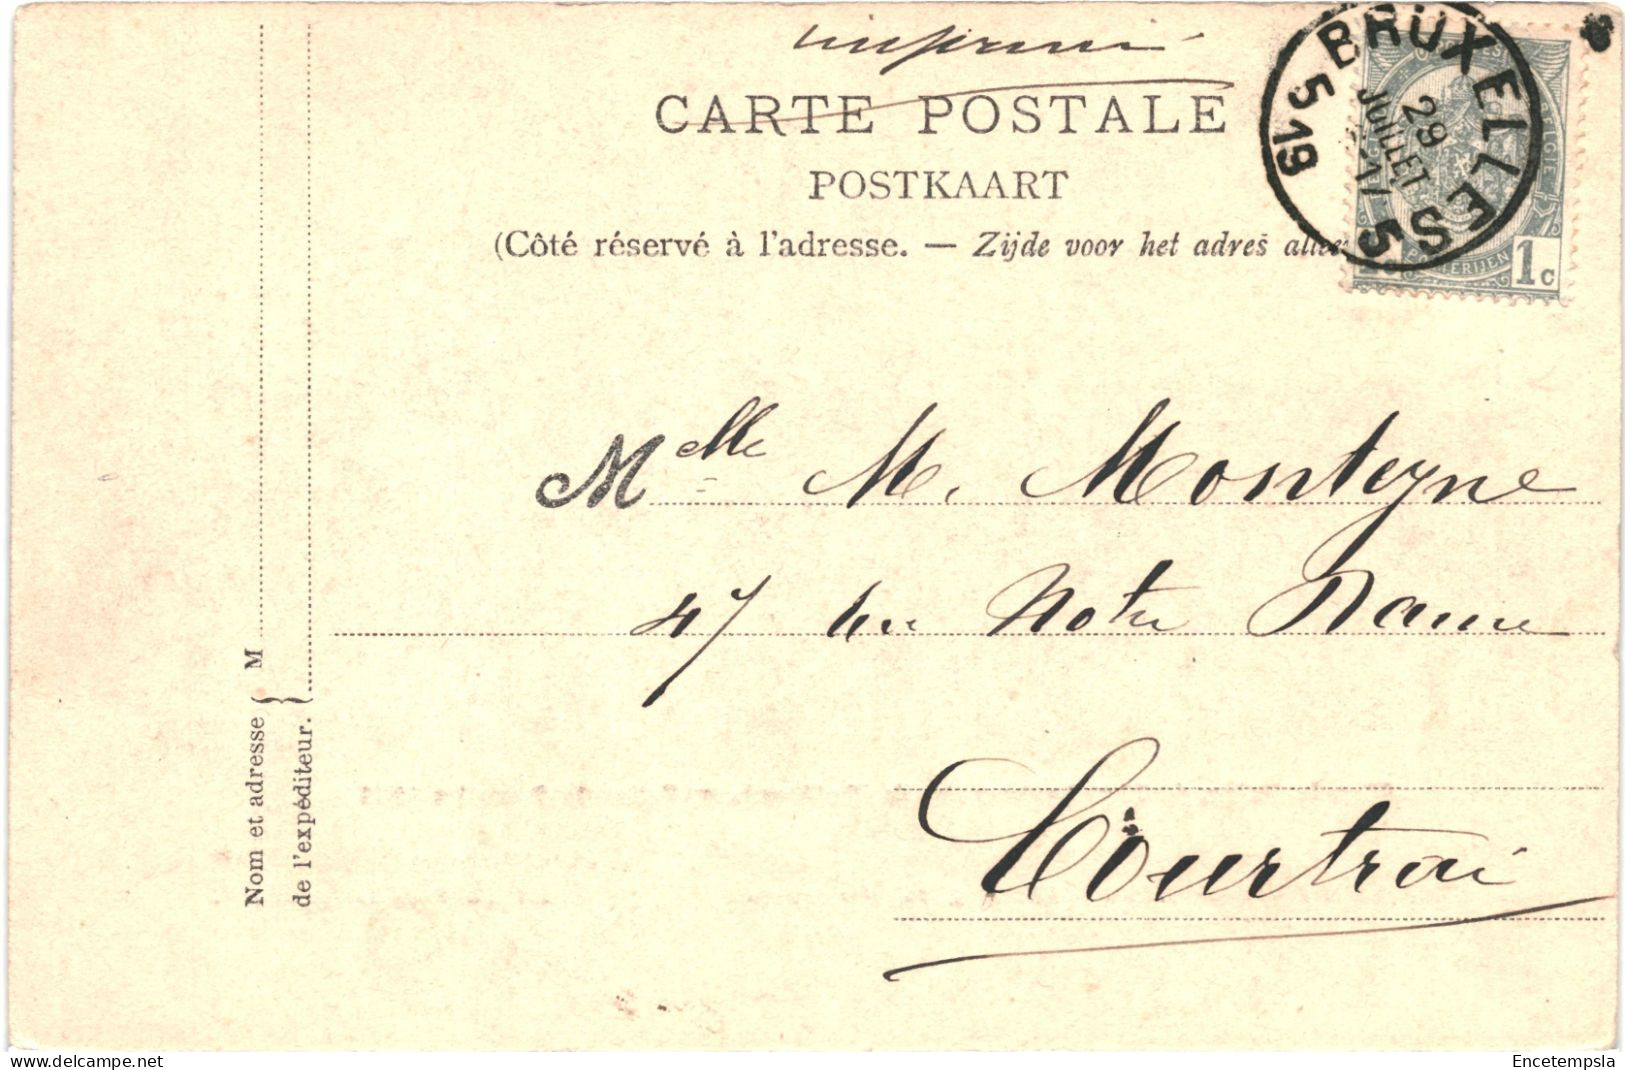 imprimé
CARTE POSTALE
POSTKAART
(Côté réservé à l'adresse. — Zijde voor het adres allee
BRUXELLES 5
29
JUILLET
5 19
POSTERIJEN
1c
Melle M. Monteyne
47 rue Notre Dame
Courtrai
Nom et adresse
de l'expéditeur. } M
delcampe.net
Encetempsla